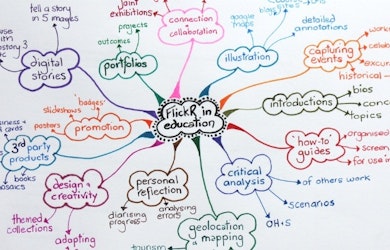 tell a story
in 5 images
digital
stories
projects
outcomes
portfolios
joint
exhibitions
connection
&
collaboration
google
maps
illustration
detailed
annotations
capturing
events
historical
FlickR in
education
introductions
bios
topics
badges
slideshows
posters
promotion
3rd party
products
cards
books
design &
creativity
themed
collections
adapting
personal
reflection
diarising
progress
analysing
errors
geolocation
& mapping
tourism
critical
analysis
of others work
scenarios
OH+S
'how-to'
guides
screen
for use in